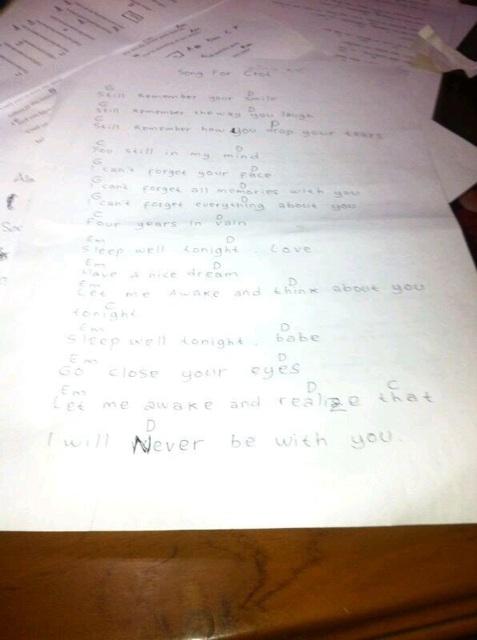 Song For Cecil
G D
Still Remember your smile
G D
Still Remember the way you laugh
G D
Still Remember how you drop your tears
C D
You still in my mind
G D
I can't forget your face
G D
I cant forget all memories with you
G D
I cant forget everything about you
C D
Four years in vain
Em D
Sleep well tonight. Love
Em D
Have a nice dream
Em D
Let me Awake and think about you
C
tonight
Em D
Sleep well tonight. babe
Em D
Go close your eyes
Em D C
Let me awake and realize that
D
I will Never be with you.